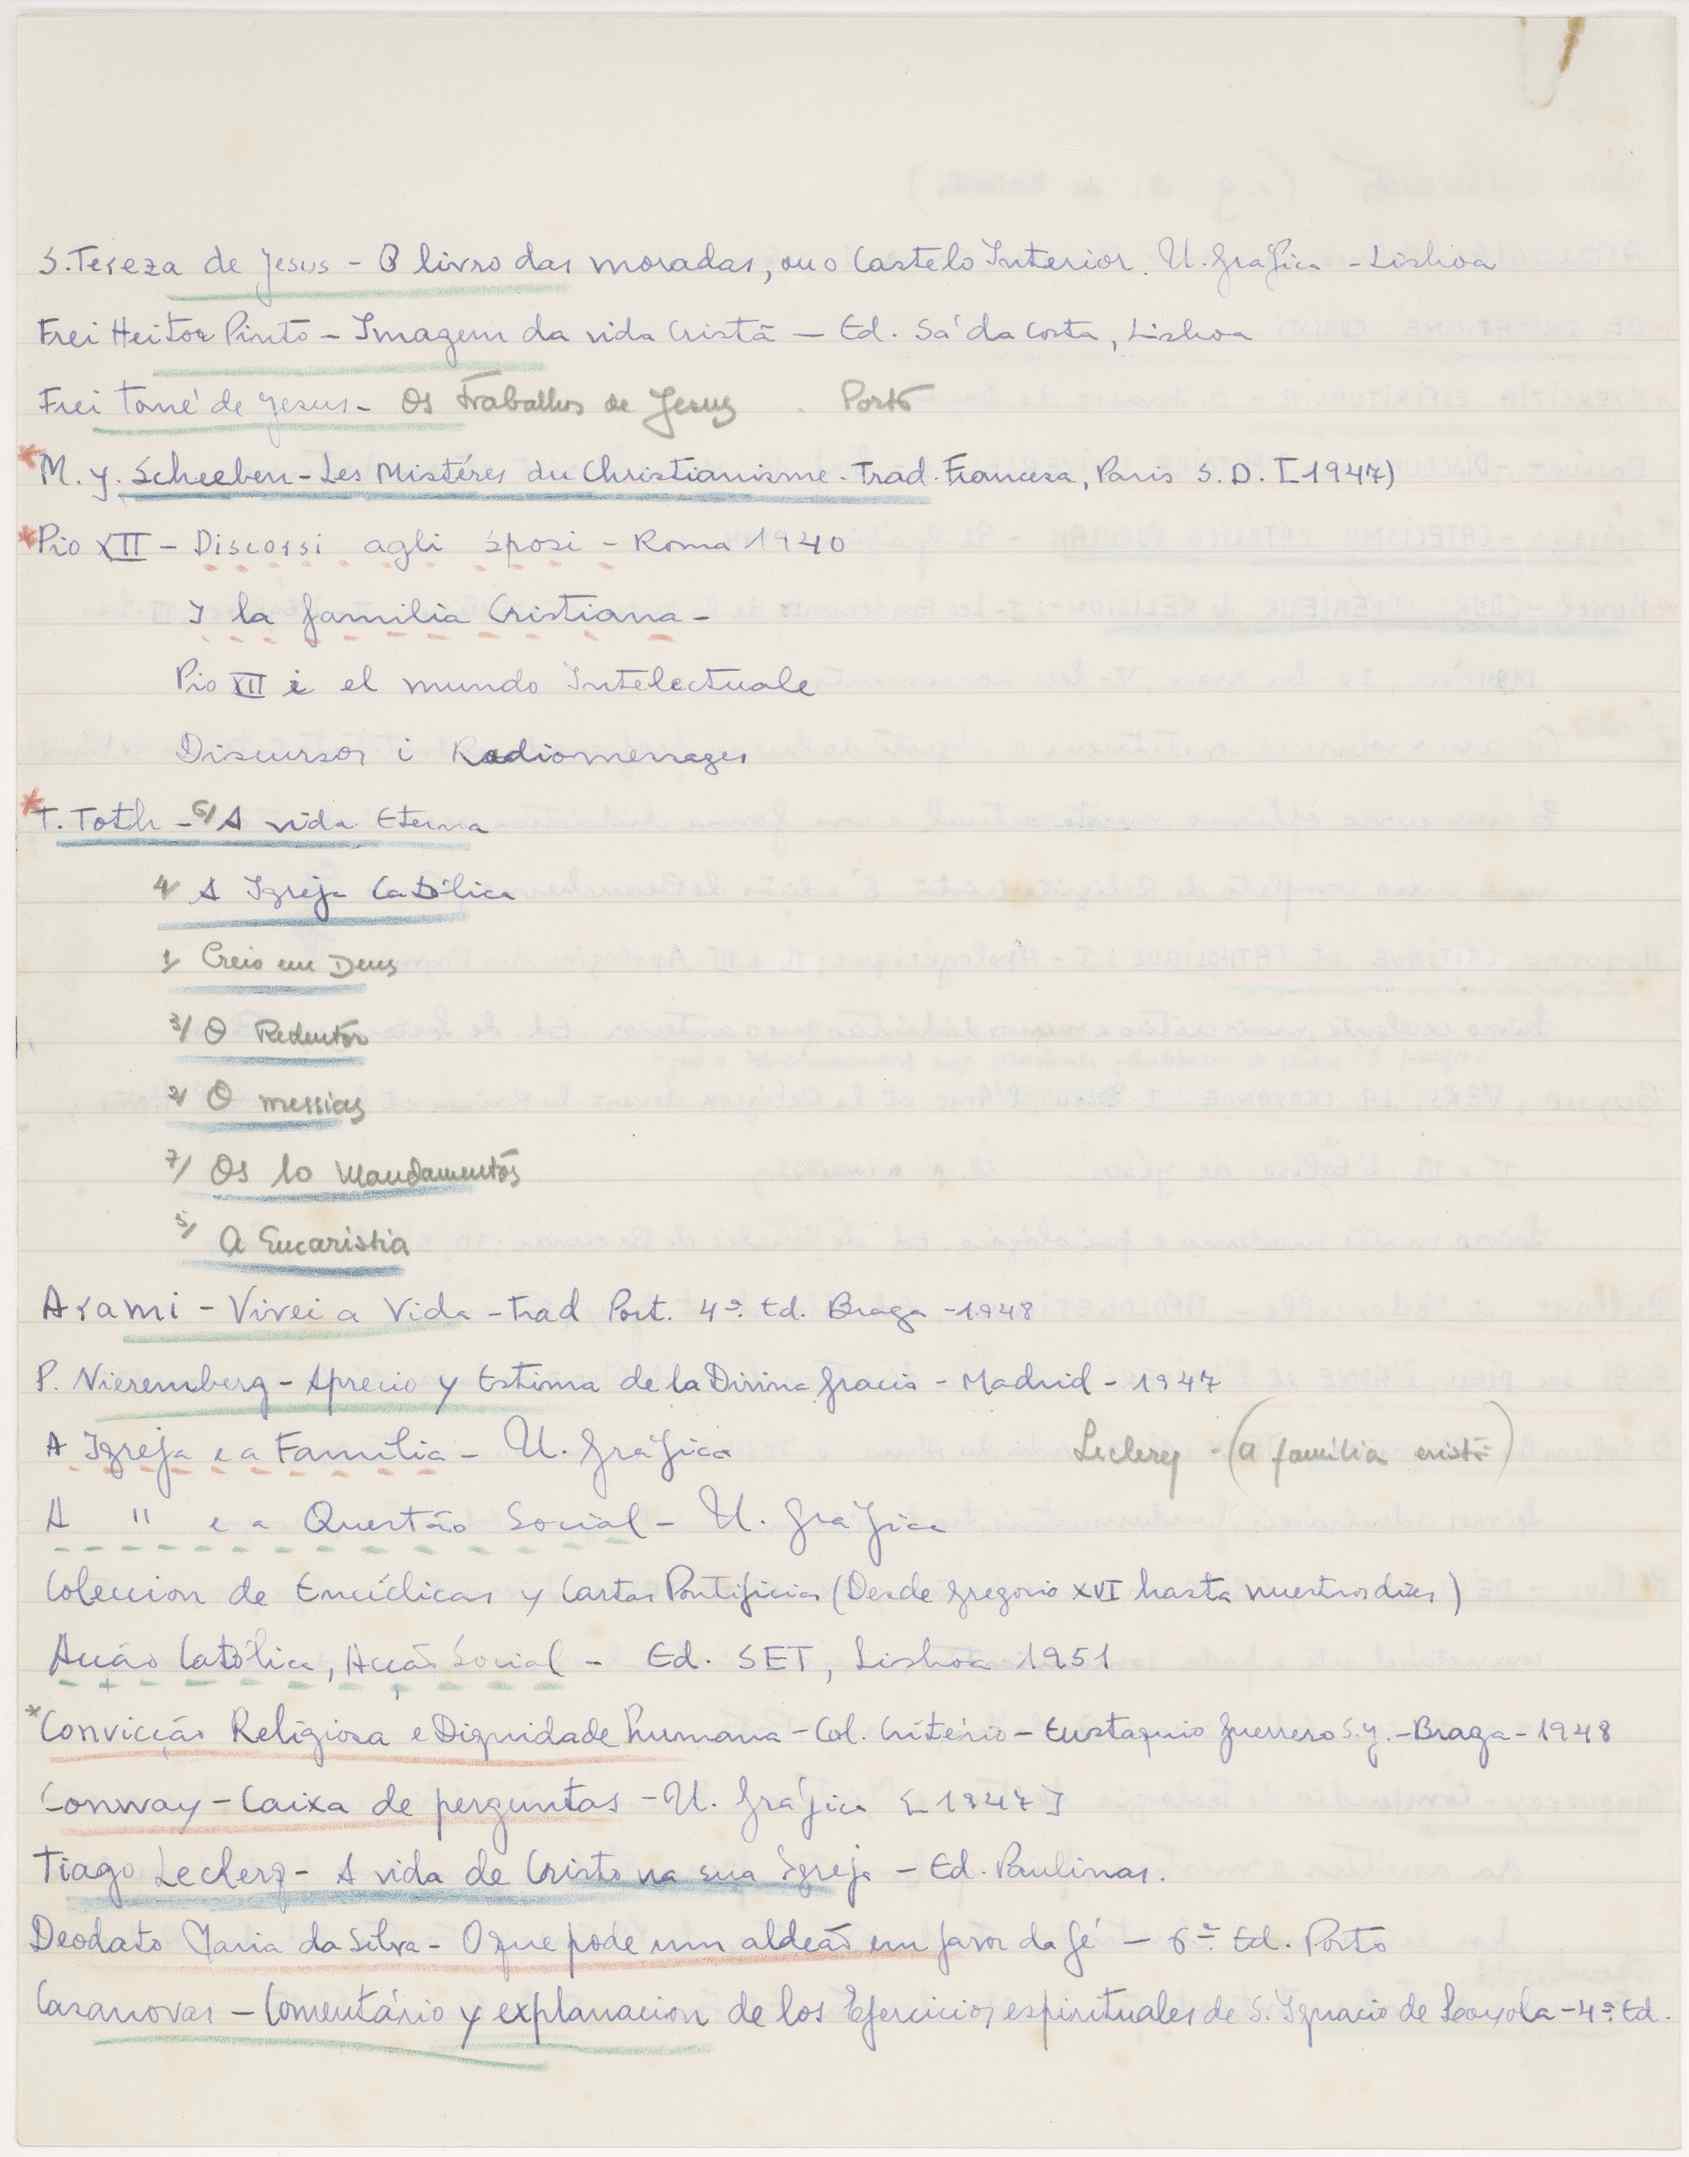 S. Tereza de Jesus - O livro das moradas, ou o Castelo Interior. U. Gráfica - Lisboa
Frei Heitor Pinto - Imagem da vida Cristã - Ed. Sá da Costa, Lisboa
Frei Tomé de Jesus - Os Trabalhos de Jesus . Porto
* M. J. Scheeben - Les Mistéres du Christianisme - Trad. Francesa, Paris S. D. [1947)
* Pio XII - Discorsi agli sposi - Roma 1940
I la familia Cristiana -
Pio XII i el mundo Intelectuale
Discursos i Radiomensages
* T. Toth - 6/ A vida Eterna
4/ A Igreja Católica
1/ Creio em Deus
3/ O Redentor
2/ O messias
7/ Os 10 Mandamentos
5/ A Eucaristia
Arami - Vivei a Vida - trad Port. 4ª. Ed. Braga - 1948
P. Nieremberg - Aprecio y Estima de la Divina Gracia - Madrid - 1947
A Igreja e a Família - U. Gráfica Leclerq - (a família cristã)
A " e a Questão Social - U. Gráfica
Coleccion de Encíclicas y Cartas Pontificias (Desde Gregorio XVI hasta nuestros dias)
Acção Católica, Acção Social - Ed. SET, Lisboa 1951
* Convicção Religiosa e Dignidade humana - Col. Critério - Eustaquio Guerrero S. J. - Braga - 1948
Conway - Caixa de perguntas - U. Gráfica [1947]
Tiago Leclerq - A vida de Cristo na sua Igreja - Ed. Paulinas.
Deodato Maria da Silva - O que pode um aldeão em favor da fé - 6ª. Ed. Porto
Casanovas - Comentário y explanacion de los Ejercicios espirituales de S. Ignacio de Loyola - 4ª. Ed.